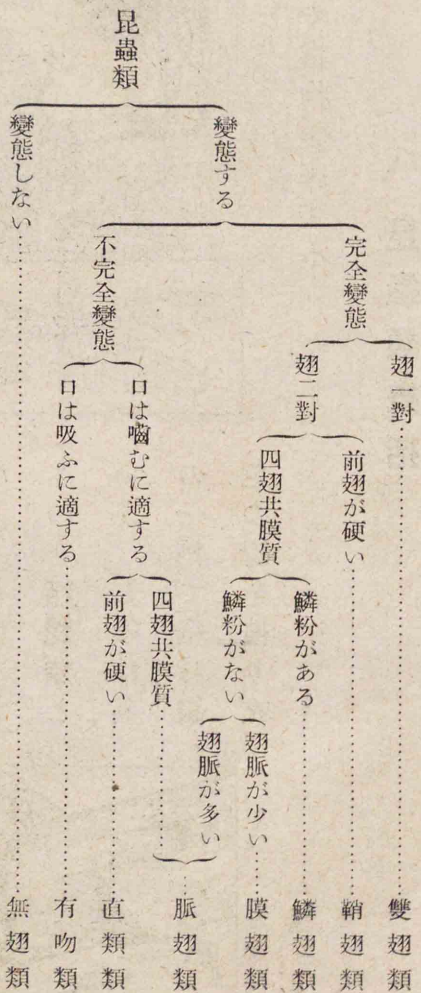 昆蟲類
變態する
完全變態
翅一對……雙翅類
翅二對
前翅が硬い……鞘翅類
四翅共膜質
鱗粉がある……鱗翅類
鱗粉がない
翅脈が少い……膜翅類
翅脈が多い
不完全變態
口は嚙むに適する
四翅共膜質……脈翅類
前翅が硬い……直類類
口は吸ふに適する……有吻類
變態しない……無翅類